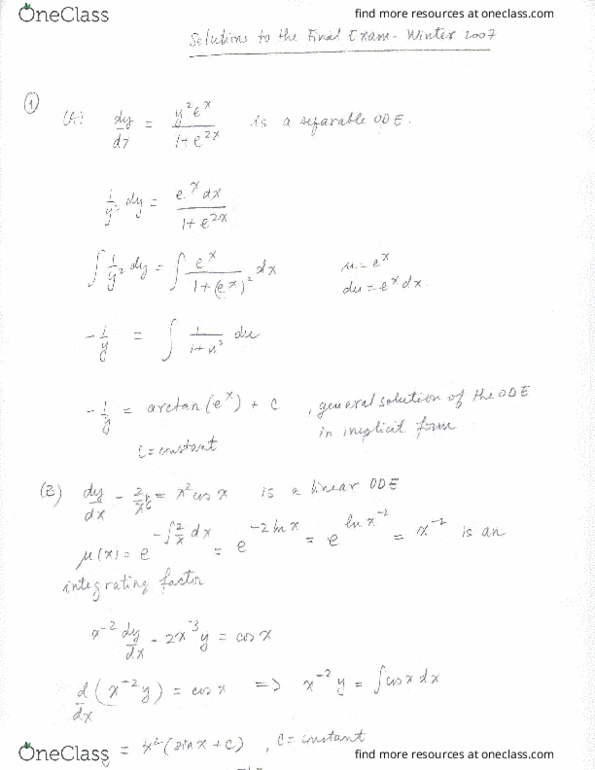 OneClass
find more resources at oneclass.com
Solutions to the Final Exam - Winter 2007
① (A) dy/dx = y²e^x / (1+e^(2x)) is a separable ODE.
1/y² dy = e^x dx / (1+e^(2x))
∫ 1/y² dy = ∫ e^x / (1+(e^x)²) dx    u = e^x
du = e^x dx.
-1/y = ∫ 1/(1+u²) du
-1/y = arctan(e^x) + c , general solution of the ODE
in implicit form
c = constant
(B) dy/dx - 2/x y = x² cos x is a linear ODE
μ(x) = e^(-∫ 2/x dx) = e^(-2 ln x) = e^(ln x^(-2)) = x^(-2) is an
integrating factor
x^(-2) dy/dx - 2x^(-3) y = cos x
d/dx (x^(-2) y) = cos x => x^(-2) y = ∫ cos x dx
y = x² (sin x + c) , c = constant
OneClass
find more resources at oneclass.com